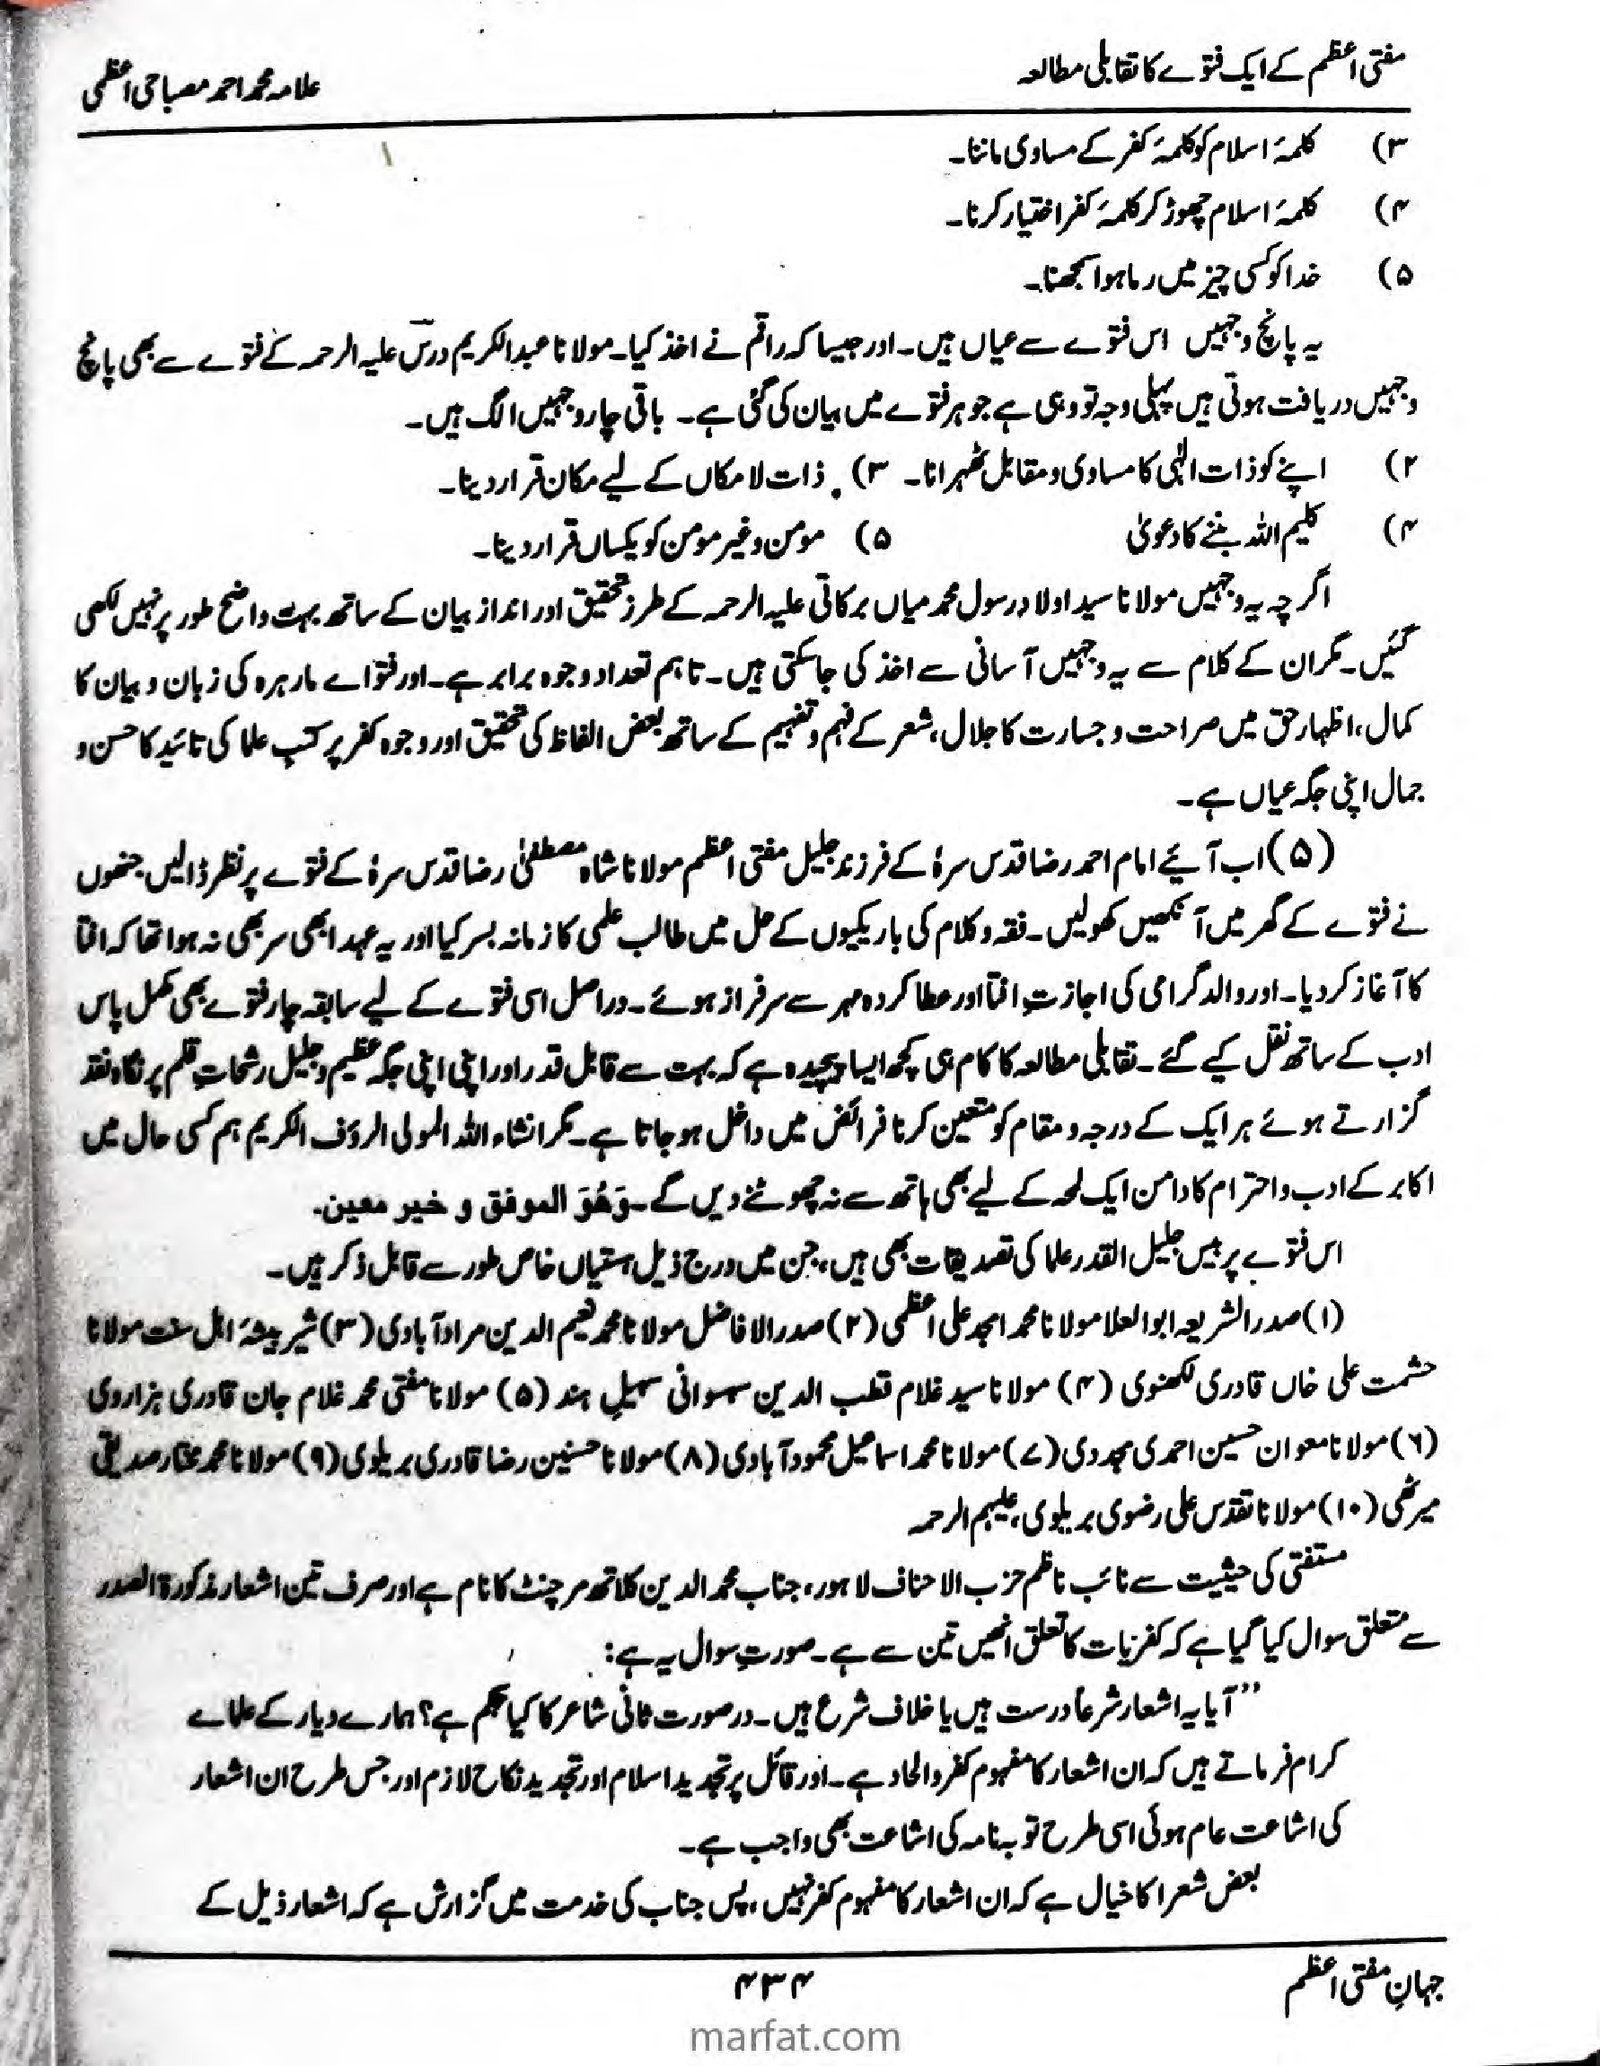 مفتی اعظم کے ایک فتوے کا تقابلی مطالعہ
علامہ محمد احمد مصباحی اعظمی
۳) کلمۂ اسلام کو کلمۂ کفر کے مساوی ماننا۔
۴) کلمۂ اسلام چھوڑ کر کلمۂ کفر اختیار کرنا۔
۵) خدا کو کسی چیز میں رما ہوا سمجھنا۔
یہ پانچ وجہیں اس فتوے سے عیاں ہیں۔ اور جیسا کہ راقم نے اخذ کیا۔ مولانا عبدالکریم درس علیہ الرحمہ کے فتوے سے بھی پانچ
وجہیں دریافت ہوتی ہیں پہلی وجہ تو وہی ہے جو ہر فتوے میں بیان کی گئی ہے۔ باقی چار وجہیں الگ ہیں۔
۲) اپنے کو ذات الٰہی کا مساوی و مقابل ٹھہرانا۔ ۳) ذات لامکاں کے لیے مکان قرار دینا۔
۴) کلیم اللہ بننے کا دعویٰ ۵) مومن و غیر مومن کو یکساں قرار دینا۔
اگرچہ یہ وجہیں مولانا سید اولاد رسول محمد میاں برکاتی علیہ الرحمہ کے طرز تحقیق اور انداز بیان کے ساتھ بہت واضح طور پر نہیں لکھی
گئیں۔ مگر ان کے کلام سے یہ وجہیں آسانی سے اخذ کی جاسکتی ہیں۔ تاہم تعداد وجوہ برابر ہے۔ اور فتواے مارہرہ کی زبان و بیان کا
کمال، اظہار حق میں صراحت و جسارت کا جلال، شعر کے فہم و تفہیم کے ساتھ بعض الفاظ کی تحقیق اور وجوہ کفر پر کتب علما کی تائید کا حسن و
جمال اپنی جگہ عیاں ہے۔
(۵) اب آئیے امام احمد رضا قدس سرہٗ کے فرزند جلیل مفتی اعظم مولانا شاہ مصطفیٰ رضا قدس سرہٗ کے فتوے پر نظر ڈالیں جنھوں
نے فتوے کے گھر میں آنکھیں کھولیں۔ فقہ و کلام کی باریکیوں کے حل میں طالب علمی کا زمانہ بسر کیا اور یہ عہد ابھی سر بھی نہ ہوا تھا کہ افتا
کا آغاز کر دیا۔ اور والد گرامی کی اجازتِ افتا اور عطا کردہ مہر سے سرفراز ہوئے۔ دراصل اسی فتوے کے لیے سابقہ چار فتوے بھی مکمل پاس
ادب کے ساتھ نقل کیے گئے۔ تقابلی مطالعہ کا کام ہی کچھ ایسا پیچیدہ ہے کہ بہت سے قابل قدر اور اپنی اپنی جگہ عظیم و جلیل رشحاتِ قلم پر نگاہ نقد
گزارتے ہوئے ہر ایک کے درجہ و مقام کو متعین کرنا فرائض میں داخل ہو جاتا ہے۔ مگر انشاء اللہ المولی الرؤف الکریم ہم کسی حال میں
اکابر کے ادب و احترام کا دامن ایک لمحہ کے لیے بھی ہاتھ سے نہ چھوٹنے دیں گے۔ وَهُوَ الموفق و خیر معین.
اس فتوے پر بیس جلیل القدر علما کی تصدیقات بھی ہیں، جن میں درج ذیل ہستیاں خاص طور سے قابل ذکر ہیں۔
(۱) صدر الشریعہ ابوالعلا مولانا محمد امجد علی اعظمی (۲) صدر الافاضل مولانا محمد نعیم الدین مرادآبادی (۳) شیر بیشۂ اہل سنت مولانا
حشمت علی خاں قادری لکھنوی (۴) مولانا سید غلام قطب الدین سہسوانی سہیلِ ہند (۵) مولانا مفتی محمد غلام جان قادری ہزاروی
(۶) مولانا معوان حسین احمدی مجددی (۷) مولانا محمد اسماعیل محمود آبادی (۸) مولانا حسنین رضا قادری بریلوی (۹) مولانا محمد مختار صدیقی
میرٹھی (۱۰) مولانا تقدس علی رضوی بریلوی، علیہم الرحمہ
مستفتی کی حیثیت سے نائب ناظم حزب الاحناف لاہور، جناب محمد الدین کلاتھ مرچنٹ کا نام ہے اور صرف تین اشعار مذکورۃ الصدر
سے متعلق سوال کیا گیا ہے کہ کفریات کا تعلق انھیں تین سے ہے۔ صورتِ سوال یہ ہے:
”آیا یہ اشعار شرعاً درست ہیں یا خلاف شرع ہیں۔ در صورت ثانی شاعر کا کیا حکم ہے؟ ہمارے دیار کے علماے
کرام فرماتے ہیں کہ ان اشعار کا مفہوم کفر و الحاد ہے۔ اور قائل پر تجدید اسلام اور تجدید نکاح لازم اور جس طرح ان اشعار
کی اشاعت عام ہوئی اسی طرح توبہ نامہ کی اشاعت بھی واجب ہے۔
بعض شعرا کا خیال ہے کہ ان اشعار کا مفہوم کفر نہیں، پس جناب کی خدمت میں گزارش ہے کہ اشعار ذیل کے
جہانِ مفتی اعظم
۴۳۴
marfat.com